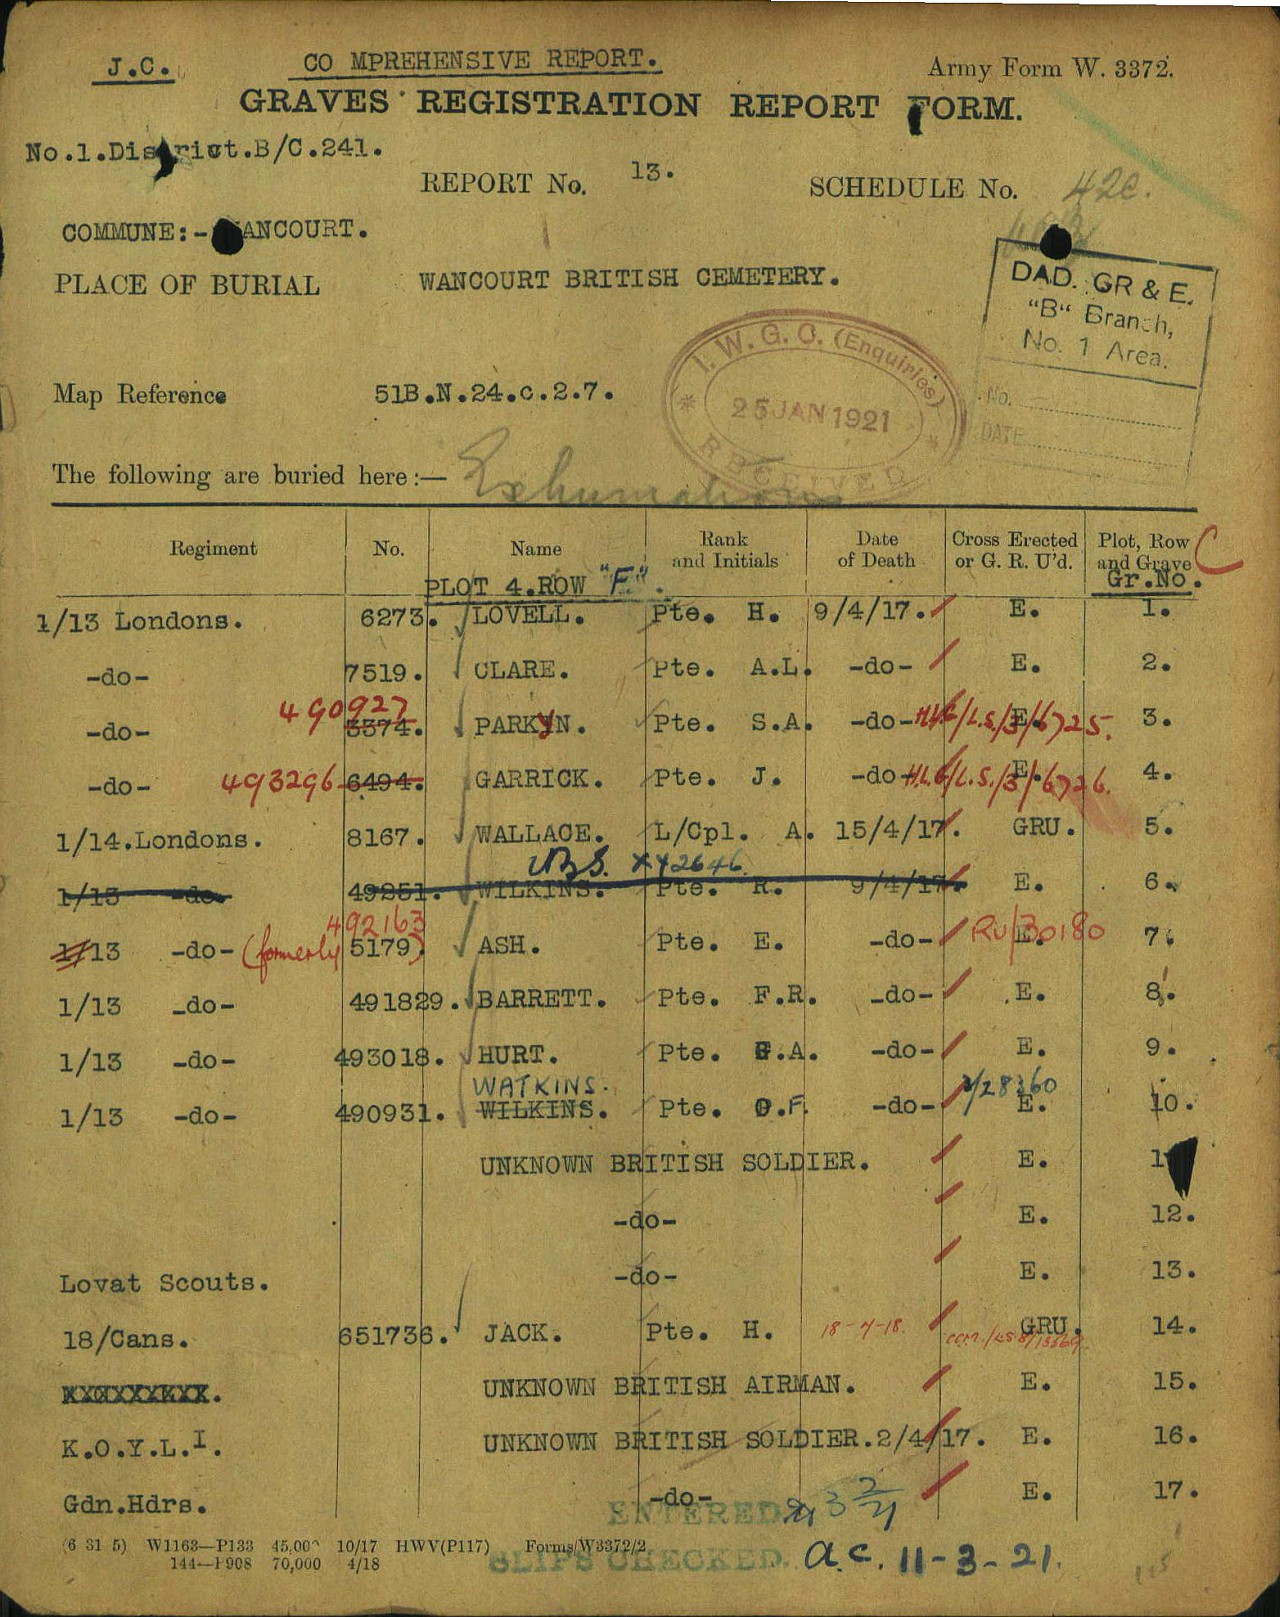 J.C. CO MPREHENSIVE REPORT. Army Form W. 3372.
GRAVES REGISTRATION REPORT FORM.
No.1.District.B/C.241.
REPORT No. 13. SCHEDULE No. 42C.
COMMUNE:- WANCOURT.
PLACE OF BURIAL WANCOURT BRITISH CEMETERY.
DAD. GR & E.
"B" Branch,
No. 1 Area.
No.
DATE
I. W. G. C. (Enquiries)
25 JAN 1921
RECEIVED
Map Reference 51B.N.24.c.2.7.
The following are buried here:— Exhumations
Regiment No. Name Rank and Initials Date of Death Cross Erected or G. R. U'd. Plot, Row and Grave C
PLOT 4. ROW "F". Gr.No.
1/13 Londons. 6273. LOVELL. Pte. H. 9/4/17. E. 1.
-do- 7519. CLARE. Pte. A.L. -do- E. 2.
490927
-do- 3374. PARKYN. Pte. S.A. -do- E. 3.
-do- 493296 6494. GARRICK. Pte. J. -do- E. 4.
1/14.Londons. 8167. WALLACE. L/Cpl. A. 15/4/17. GRU. 5.
UBS. XY2646
1/13 -do- 49251. WILKINS. Pte. R. 9/4/17. E. 6.
492163
1/13 -do- (formerly 5179). ASH. Pte. E. -do- RU/30180 E. 7.
1/13 -do- 491829. BARRETT. Pte. F.R. -do- E. 8.
1/13 -do- 493018. HURT. Pte. G.A. -do- E. 9.
WATKINS.
1/13 -do- 490931. WILKINS. Pte. O.F. -do- E. 10.
UNKNOWN BRITISH SOLDIER. E. 1
-do- E. 12.
Lovat Scouts. -do- E. 13.
18/Cans. 651736. JACK. Pte. H. 18-4-18. GRU. 14.
UNKNOWN BRITISH AIRMAN. E. 15.
K.O.Y.L.I. UNKNOWN BRITISH SOLDIER. 2/4/17. E. 16.
Gdn.Hdrs. -do- E. 17.
ENTERED
(6 31 5) W1163—P133 45,000 10/17 HWV(P117) Forms/W3372/2
144—P908 70,000 4/18
SLIPS CHECKED. a.c. 11-3-21.